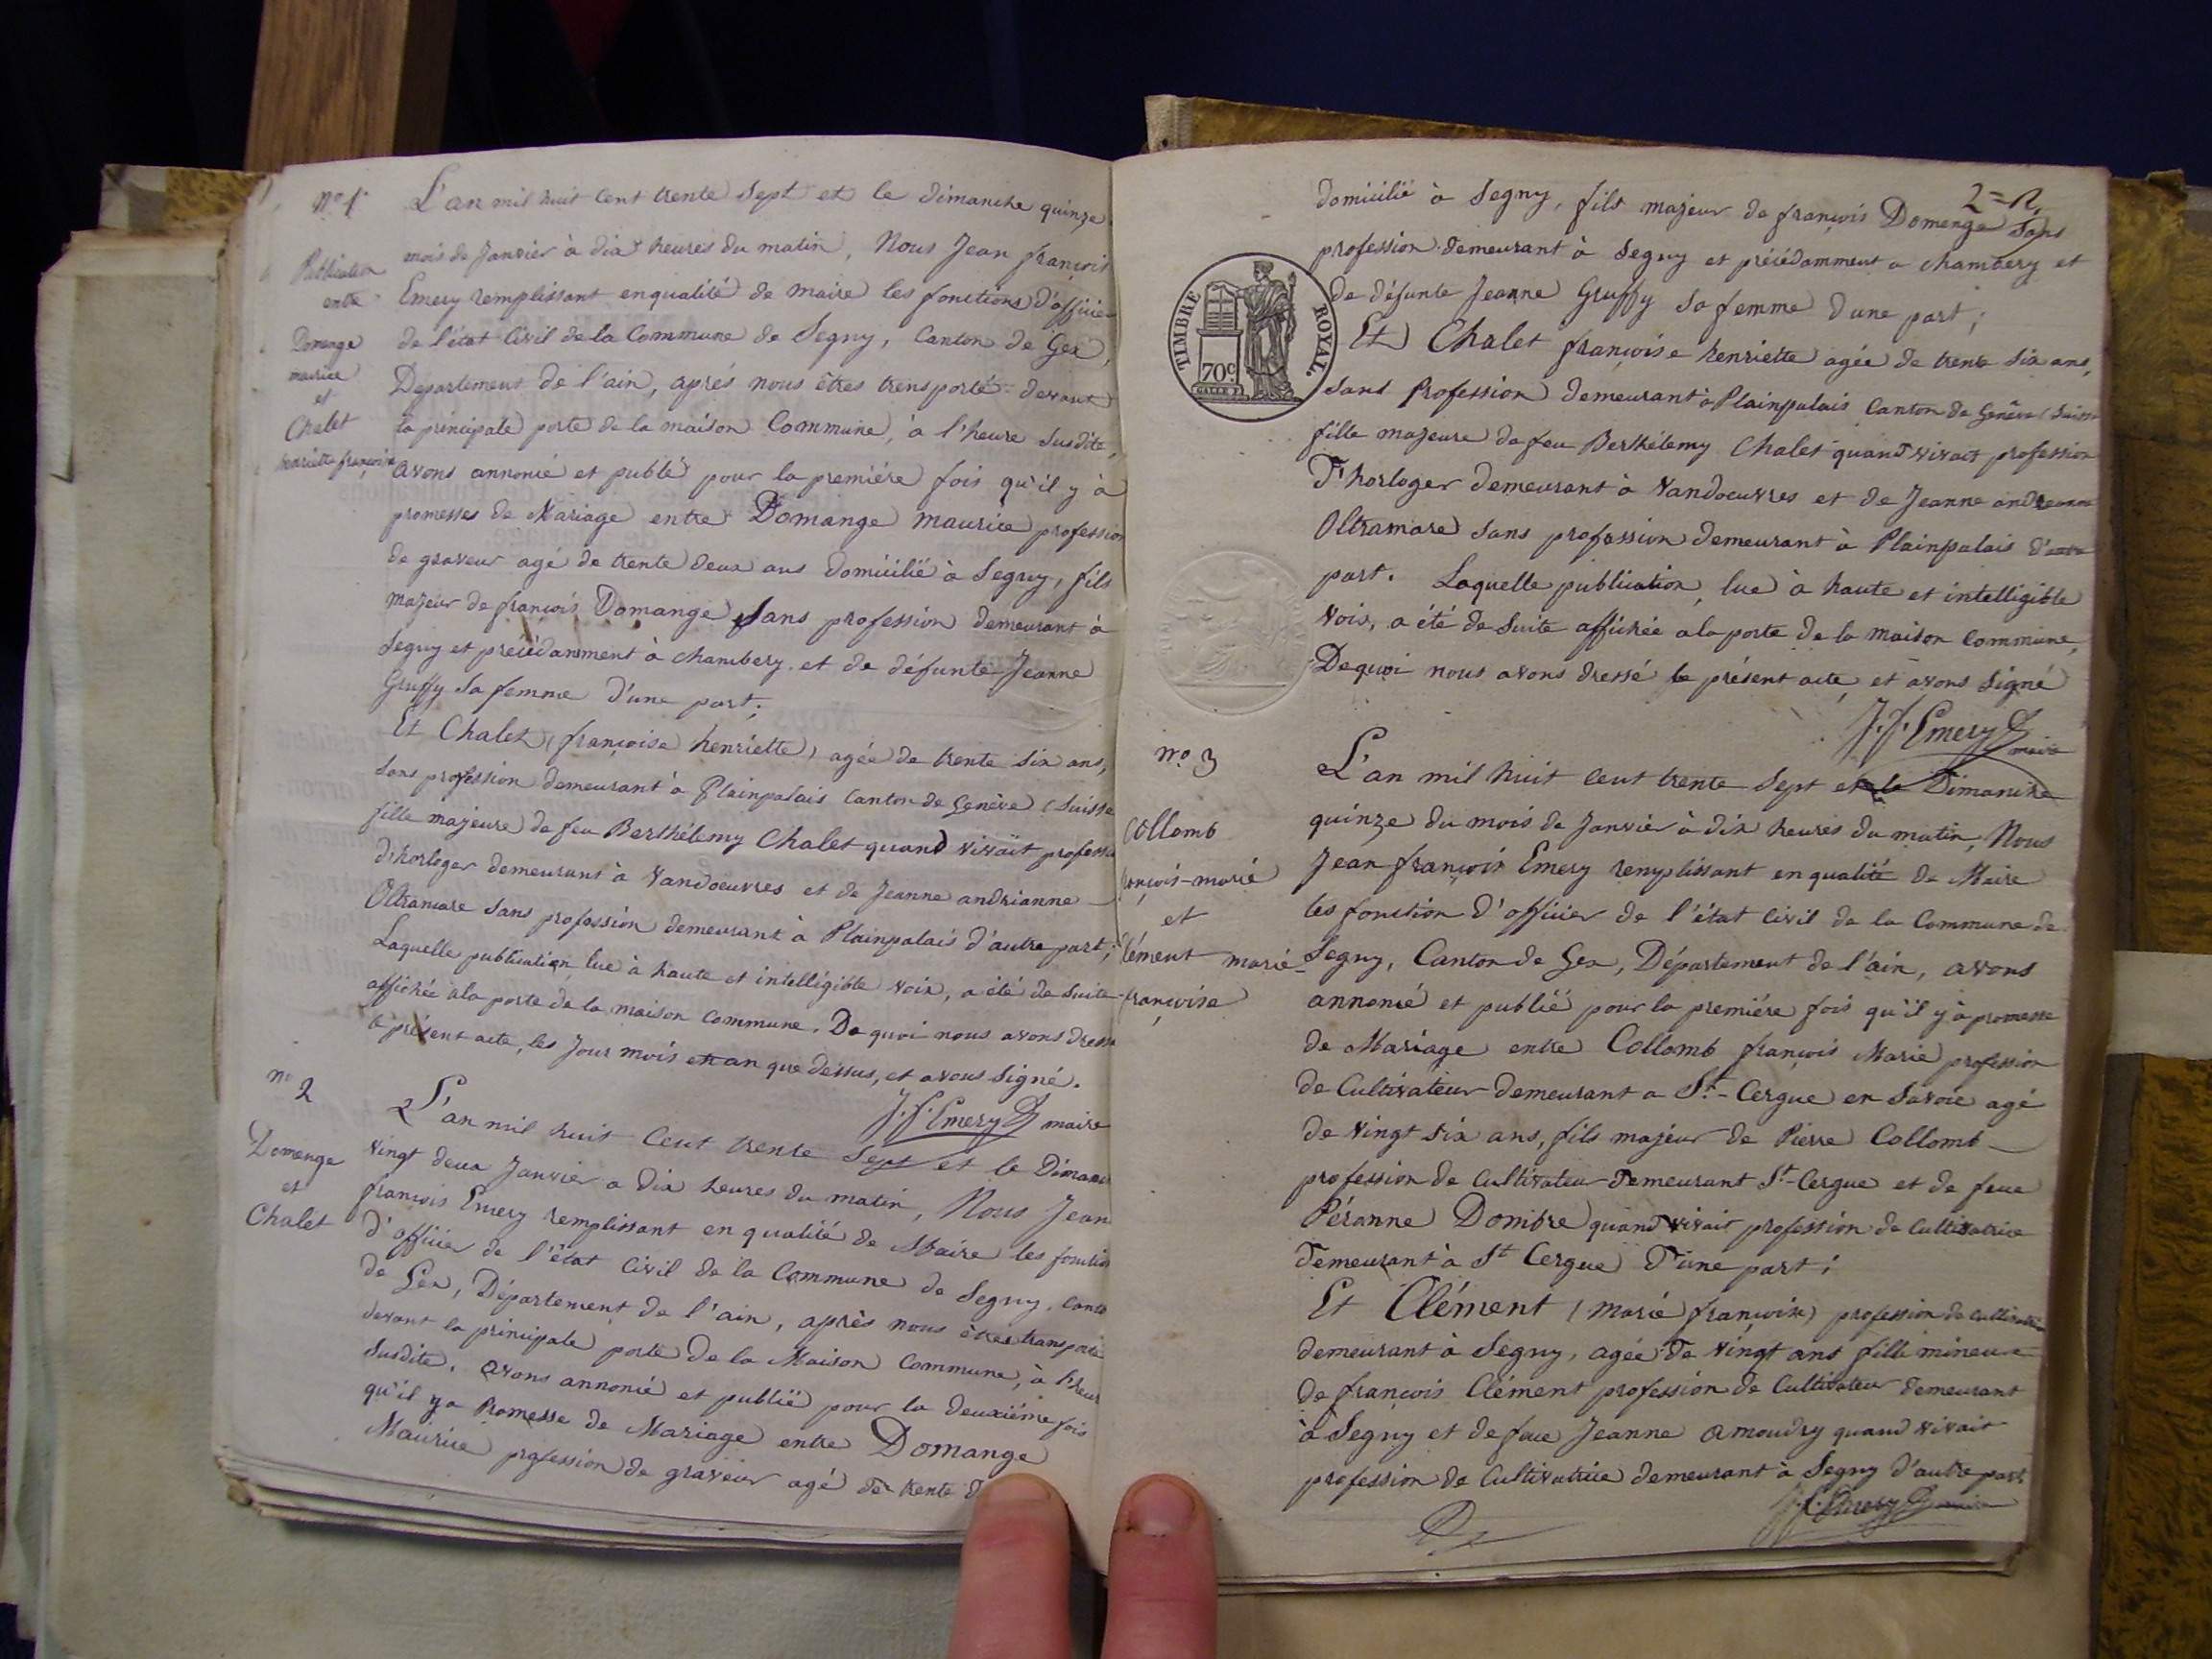 nº 1er
Publication
entre
Domenge
maurice
et
Chalet
henriette françoise
L'an mil huit cent trente sept et le dimanche quinze
mois de Janvier à dix heures du matin, Nous Jean françois
Emery remplissant enqualité de maire les fonctions d'officier
de l'état Civil de la Commune de Segny, Canton de Gex,
Departement de l'ain, aprés nous êtres trensporté devant
la principale porte de la maison Commune, à l'heure susdite,
avons annoncé et publé pour la premiére fois qu'il y à
promesses de Mariage entre Domange maurice profession
de graveur agé de trente deux ans domicilié à Segny, fils
majeur de françois Domange sans profession demeurant à
Segny et précédamment à chambery et de défunte Jeanne
Gruffy sa femme d'une part;
Et Chalet (françoise henriette) agée de trente six ans,
sans profession demeurant à Plainpalais Canton de Genève (Suisse
fille majeure de feu Berthélemy Chalet quand vivait profession
d'horloger demeurant à Vandoeuvres et de Jeanne andrianne
Oltramare sans profession demeurant à Plainpalais d'autre part;
Laquelle publication lue à haute et intelligible voix, a été de suite
affichée à la porte de la maison commune. De quoi nous avons dressé
le présent acte, les Jour mois et an que dessus, et avons signé.
J. f. Emery maire
nº 2
Domenge
et
Chalet
L'an mil huit Cent trente Sept et le Dimanc
vingt deux Janvier a dix heures du matin, Nous Jean
françois Emery remplissant en qualité de Maire les fonction
d'officier de l'état Civil de la Commune de Segny, Canto
de Gex, Département de l'ain, aprés nous êtres transporté
devant la principale porte de la Maison Commune, à l'heur
susdite, avons annoncé et publié pour la deuxiéme fois
qu'il y a Promesse de Mariage entre Domange
Maurice profession de graveur agé de trente d
2e R.
domicilié à Segny, fils majeur de françois Domenge sans
profession demeurant à Segny et précédamment a chambery et
de défunte Jeanne Gruffy sa femme d une part;
Et Chalet françoise henriette agée de trente six ans,
sans Profession demeurant à Plainpalais Canton de Genève (Suisse
fille majeure de feu Berthélemy Chalet quand vivait profession
d'horloger demeurant à Vandoeuvres et de Jeanne andreanne
Oltramare sans profession demeurant à Plainpalais d'autre
part. Laquelle publication, lue à haute et intelligible
voix, a été de suite affichée a la porte de la maison commune,
De quoi nous avons dressé le présent acte, et avons signé
J. f. Emery maire
TIMBRE ROYAL.
70c
nº 3
Collomb
françois-marie
et
Clément marie
françoise
L'an mil huit cent trente sept et le Dimanche
quinze du mois de Janvier à dix heures du matin, Nous
Jean françois Emery remplissant en qualité de Maire
les fonction d'officier de l'état Civil de la Commune de
Segny, Canton de Gex, Département de l'ain, avons
annoncé et publié pour la premiére fois qu'il y à promesse
de Mariage entre Collomb françois Marie profession
de Cultivateur demeurant a St-Cergue en Savoie agé
de vingt six ans, fils majeur de Pierre Collomb
profession de Cultivateur demeurant St-Cergue et de feue
Péronne Dombre quand vivait profession de Cultivatrice
demeurant à St Cergue d'une part;
Et Clément (marie françoise) profession de Cultivatrice
demeurant à Segny, agée de vingt ans fille mineure
de françois Clément profession de Cultivateur demeurant
à Segny et de feue Jeanne amoudry quand vivait
profession de Cultivatrice demeurant à Segny d'autre part
J. f. Emery maire